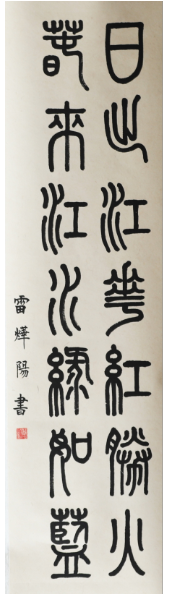 日出江花紅勝火
萅來江水緑如藍
雷燁陽書